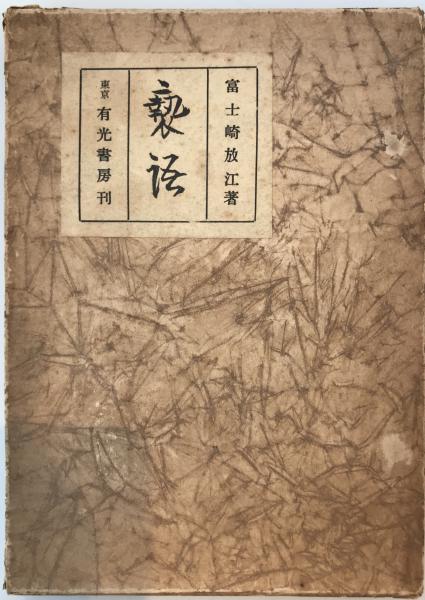 富士崎放江著
褻語
東京 有光書房刊